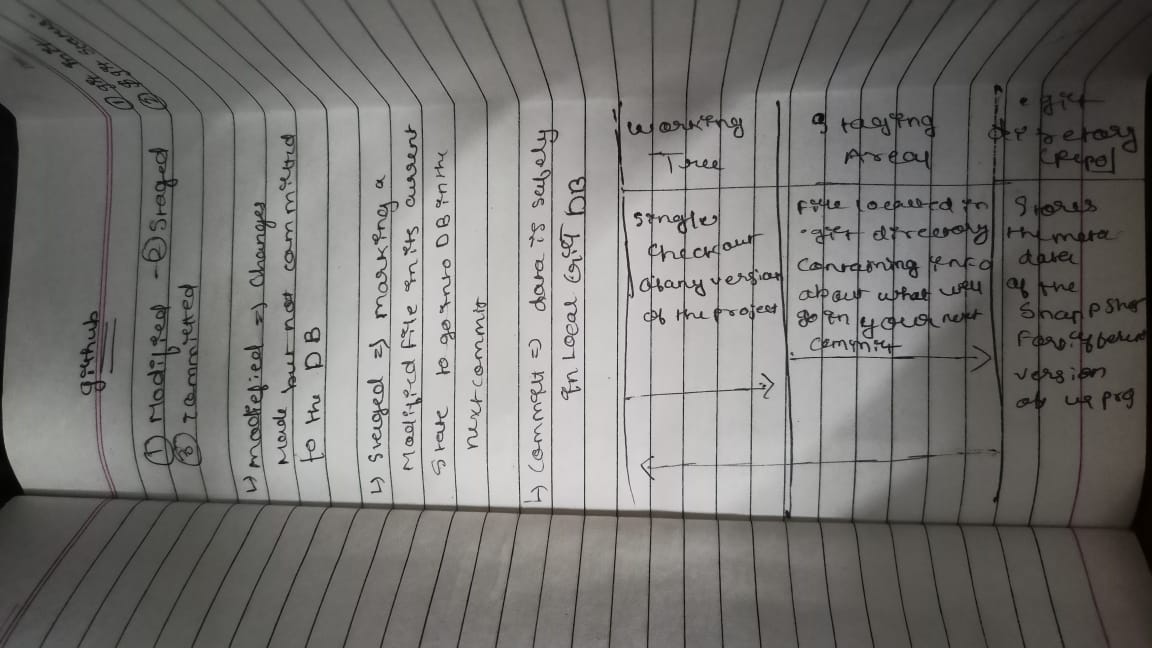 github
① Modified - ② Staged
③ Committed
↳ modefied => changes
Made but not committed
to the DB
↳ Staged => marking a
Modified File in its current
State to go into DB in the
next commit
↳ Commit => data is safely
in Local Git DB
Working
Tree
Single
Checkout
of any version
of the project
Staging
Areal
File located in
.git directory
Containing info
about what will
go in your next
Commit
.git
directory
[Repo]
Stores
the meta
data
of the
Snapp Shot
For different
version
of ur prg